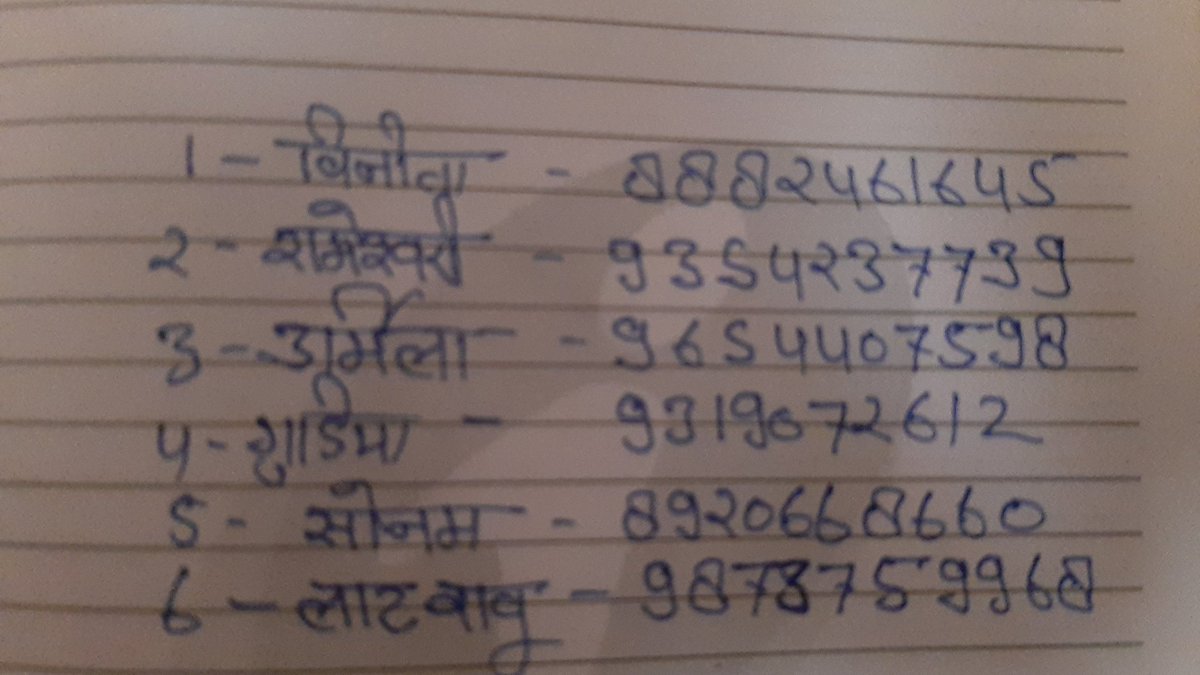 1 - विनीता - 8882461645
2 - रामेश्वरी - 9354237739
3 - उर्मिला - 9654407598
4 - गुडिया - 9319072612
5 - सोनम - 8920668660
6 - लाटबाबू - 9873759968